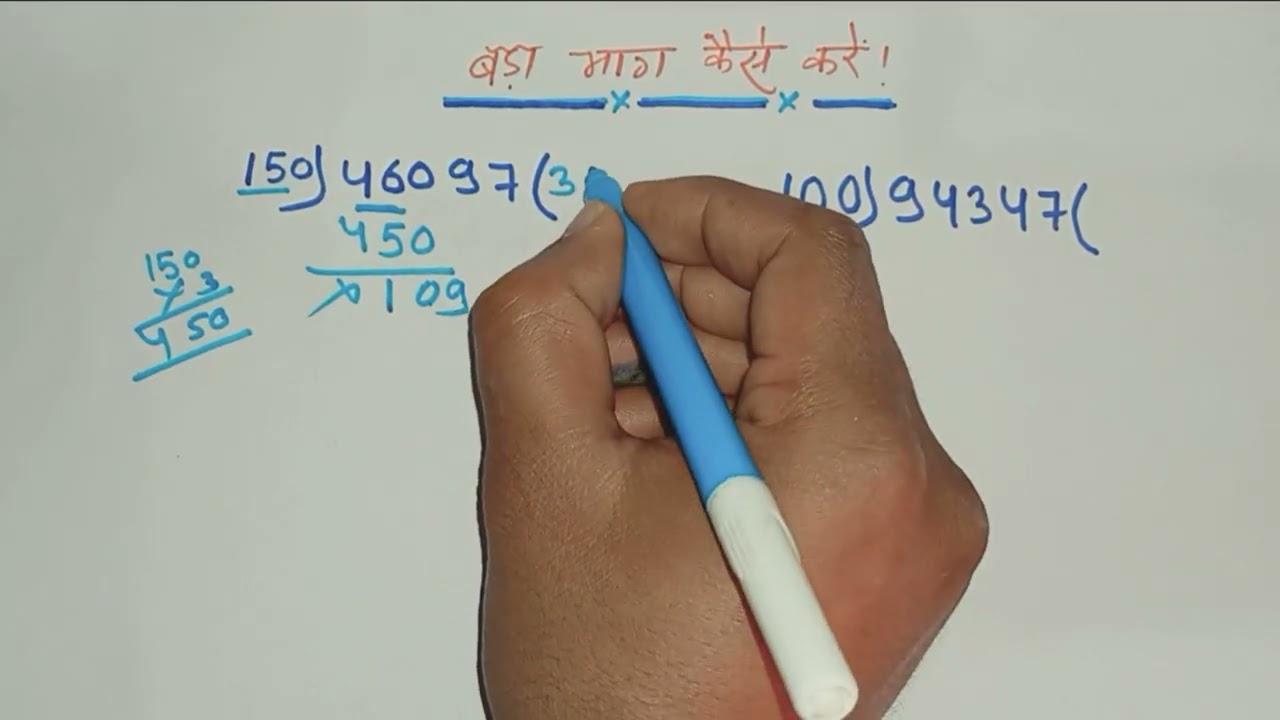 बड़ा भाग कैसे करें!
150) 46097 (3
450
× 109
150
× 3
450
100) 94347 (